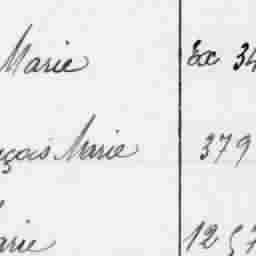 Marie Ex 34
nçois Marie 379
Marie 1257